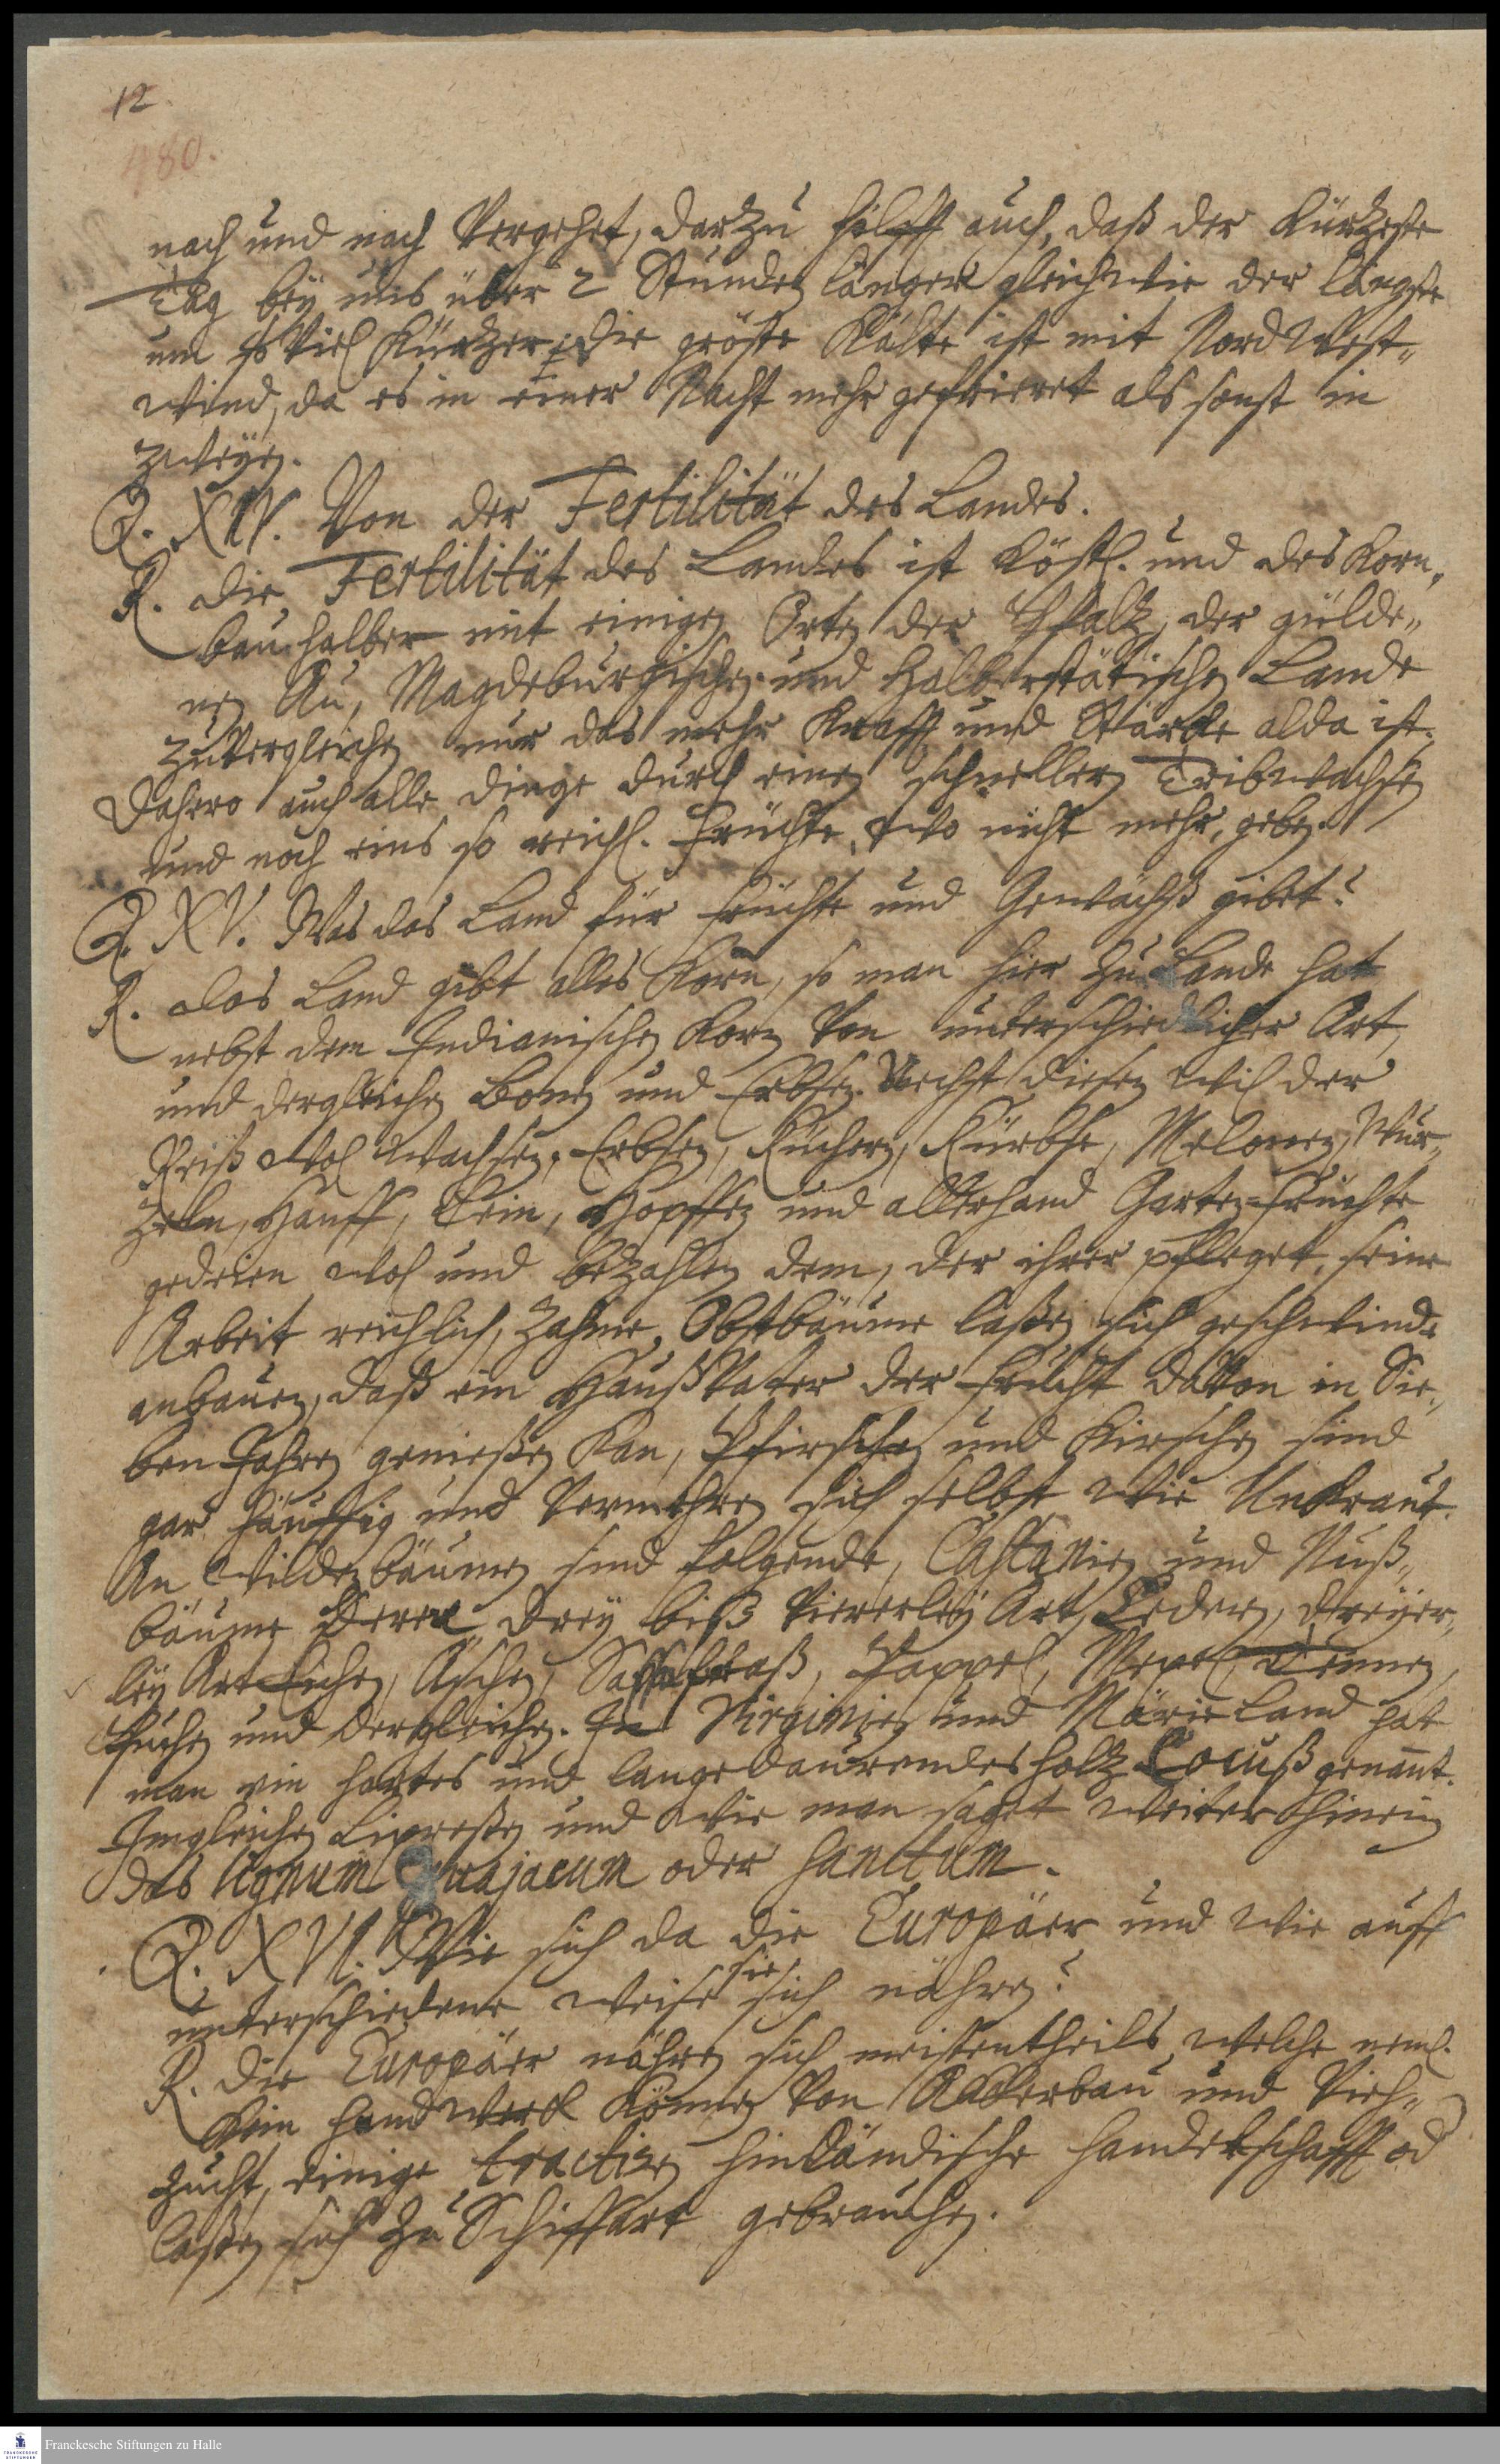 12.
480.
nach und nach Vergehet, darzu hilfft auch, daß der Kürtzeste
Tag bey uns über 2 Stunden länger gleichwie der längste
um so Viel Kürtzer, die gröste Kälte ist mit Nord West-
wind, da es in einer Nacht mehr gefrieret als sonst in
zweyen.
Q. XIV. Von der Fertilität des Landes.
R. die Fertilität des Landes ist Köstl. und des Korn-
bau halber mit einigen Orten der Pfaltz, der gülde-
nen Au, Magdeburgischen und Halberstätischen Lande
zu Vergleichen nur das mehr Krafft und Stärcke alda ist.
Dahero auch alle dinge durch einen schnellern Trib wachsen
und noch eins so reichl. Früchte, wo nicht mehr, geben.
Q. XV. Was das Land für Früchte und Gewächß gibet?
R. das Land gibt alles Korn, so man hier zu Lande hat
nebst dem Indianischen Korn von unterschiedlicher Art,
und dergleichen Bonen und Erbsen. Nechst diesen wil der
Reiß wol wachsen, Erbsen, Kuchern, Kürbse, Melonen, Wur-
zeln, Hanff, Lein, Hopffen und allerhand Garten-Früchte
gedeien wol und bezahlen dem, der ihrer pfleget, seine
Arbeit reichlich, Zahme Obstbäume laßen sich geschwinde
anbauen, daß ein Hauß Vater der Frucht davon in Sie-
ben Jahren genießen Kan, Pfirschen und Kirschen sind
gar häuffig und Vermehren sich selbst wie Unkraut.
An wilden bäumen sind folgende, Castanien und Nuß-
bäume derer drey biß Viererley Art, Cedern, dreyer-
ley Art Eichen, Äschen, Sassafraß, Pappel, Mepel, Tennen,
Buchen und dergleichen. In Virginien und Märieland hat
man ein hartes und lange daurendes holtz Locuß genannt.
Imgleichen Cipreßen und wie man saget weiter hinein
das lignum Guajacum oder sanctum.
Q. XVI. Wie sich da die Europäer und wie auff
unterschiedene weise sie sich nähren?
R. die Europäer nähren sich meistentheils, welche neml.
Kein handwerck Können Von Ackerbau und Vieh-
zucht, einige tractiren hinländische handelschafft od
laßen sich zu Schiffart gebrauchen.
Franckesche Stiftungen zu Halle